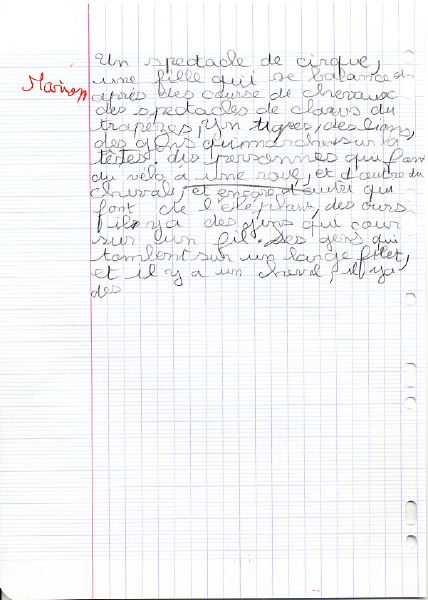 Un spectacle de cirque,
une fille qui se balance du
Marion
après des course de chevaux
des spectacles de clowns du
trapèzes, Un tigres, des lions,
des gens qui marche sur la
têtes. des personnes qui font
du vélo a une roue, et d'autre du
cheval, et encore d'autre qui
font de l'éléphant, des ours
il ya des gens qui cour
sur un fil. des gens qui
tombent sur un large filet,
et il y a un cheval, il ya
des